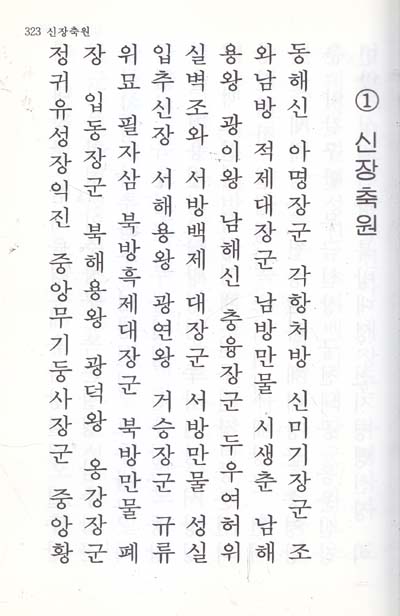 323 신장축원
① 신장축원
동해신 아명장군 각항처방 신미기장군 조
와남방 적제대장군 남방만물 시생춘 남해
용왕 광이왕 남해신 충융장군 두우여허위
실벽조와 서방백제 대장군 서방만물 성실
입추신장 서해용왕 광연왕 거승장군 규류
위묘 필자삼 북방흑제대장군 북방만물 폐
장 입동장군 북해용왕 광덕왕 옹강장군
정귀유성장익진 중앙무기둥사장군 중앙황